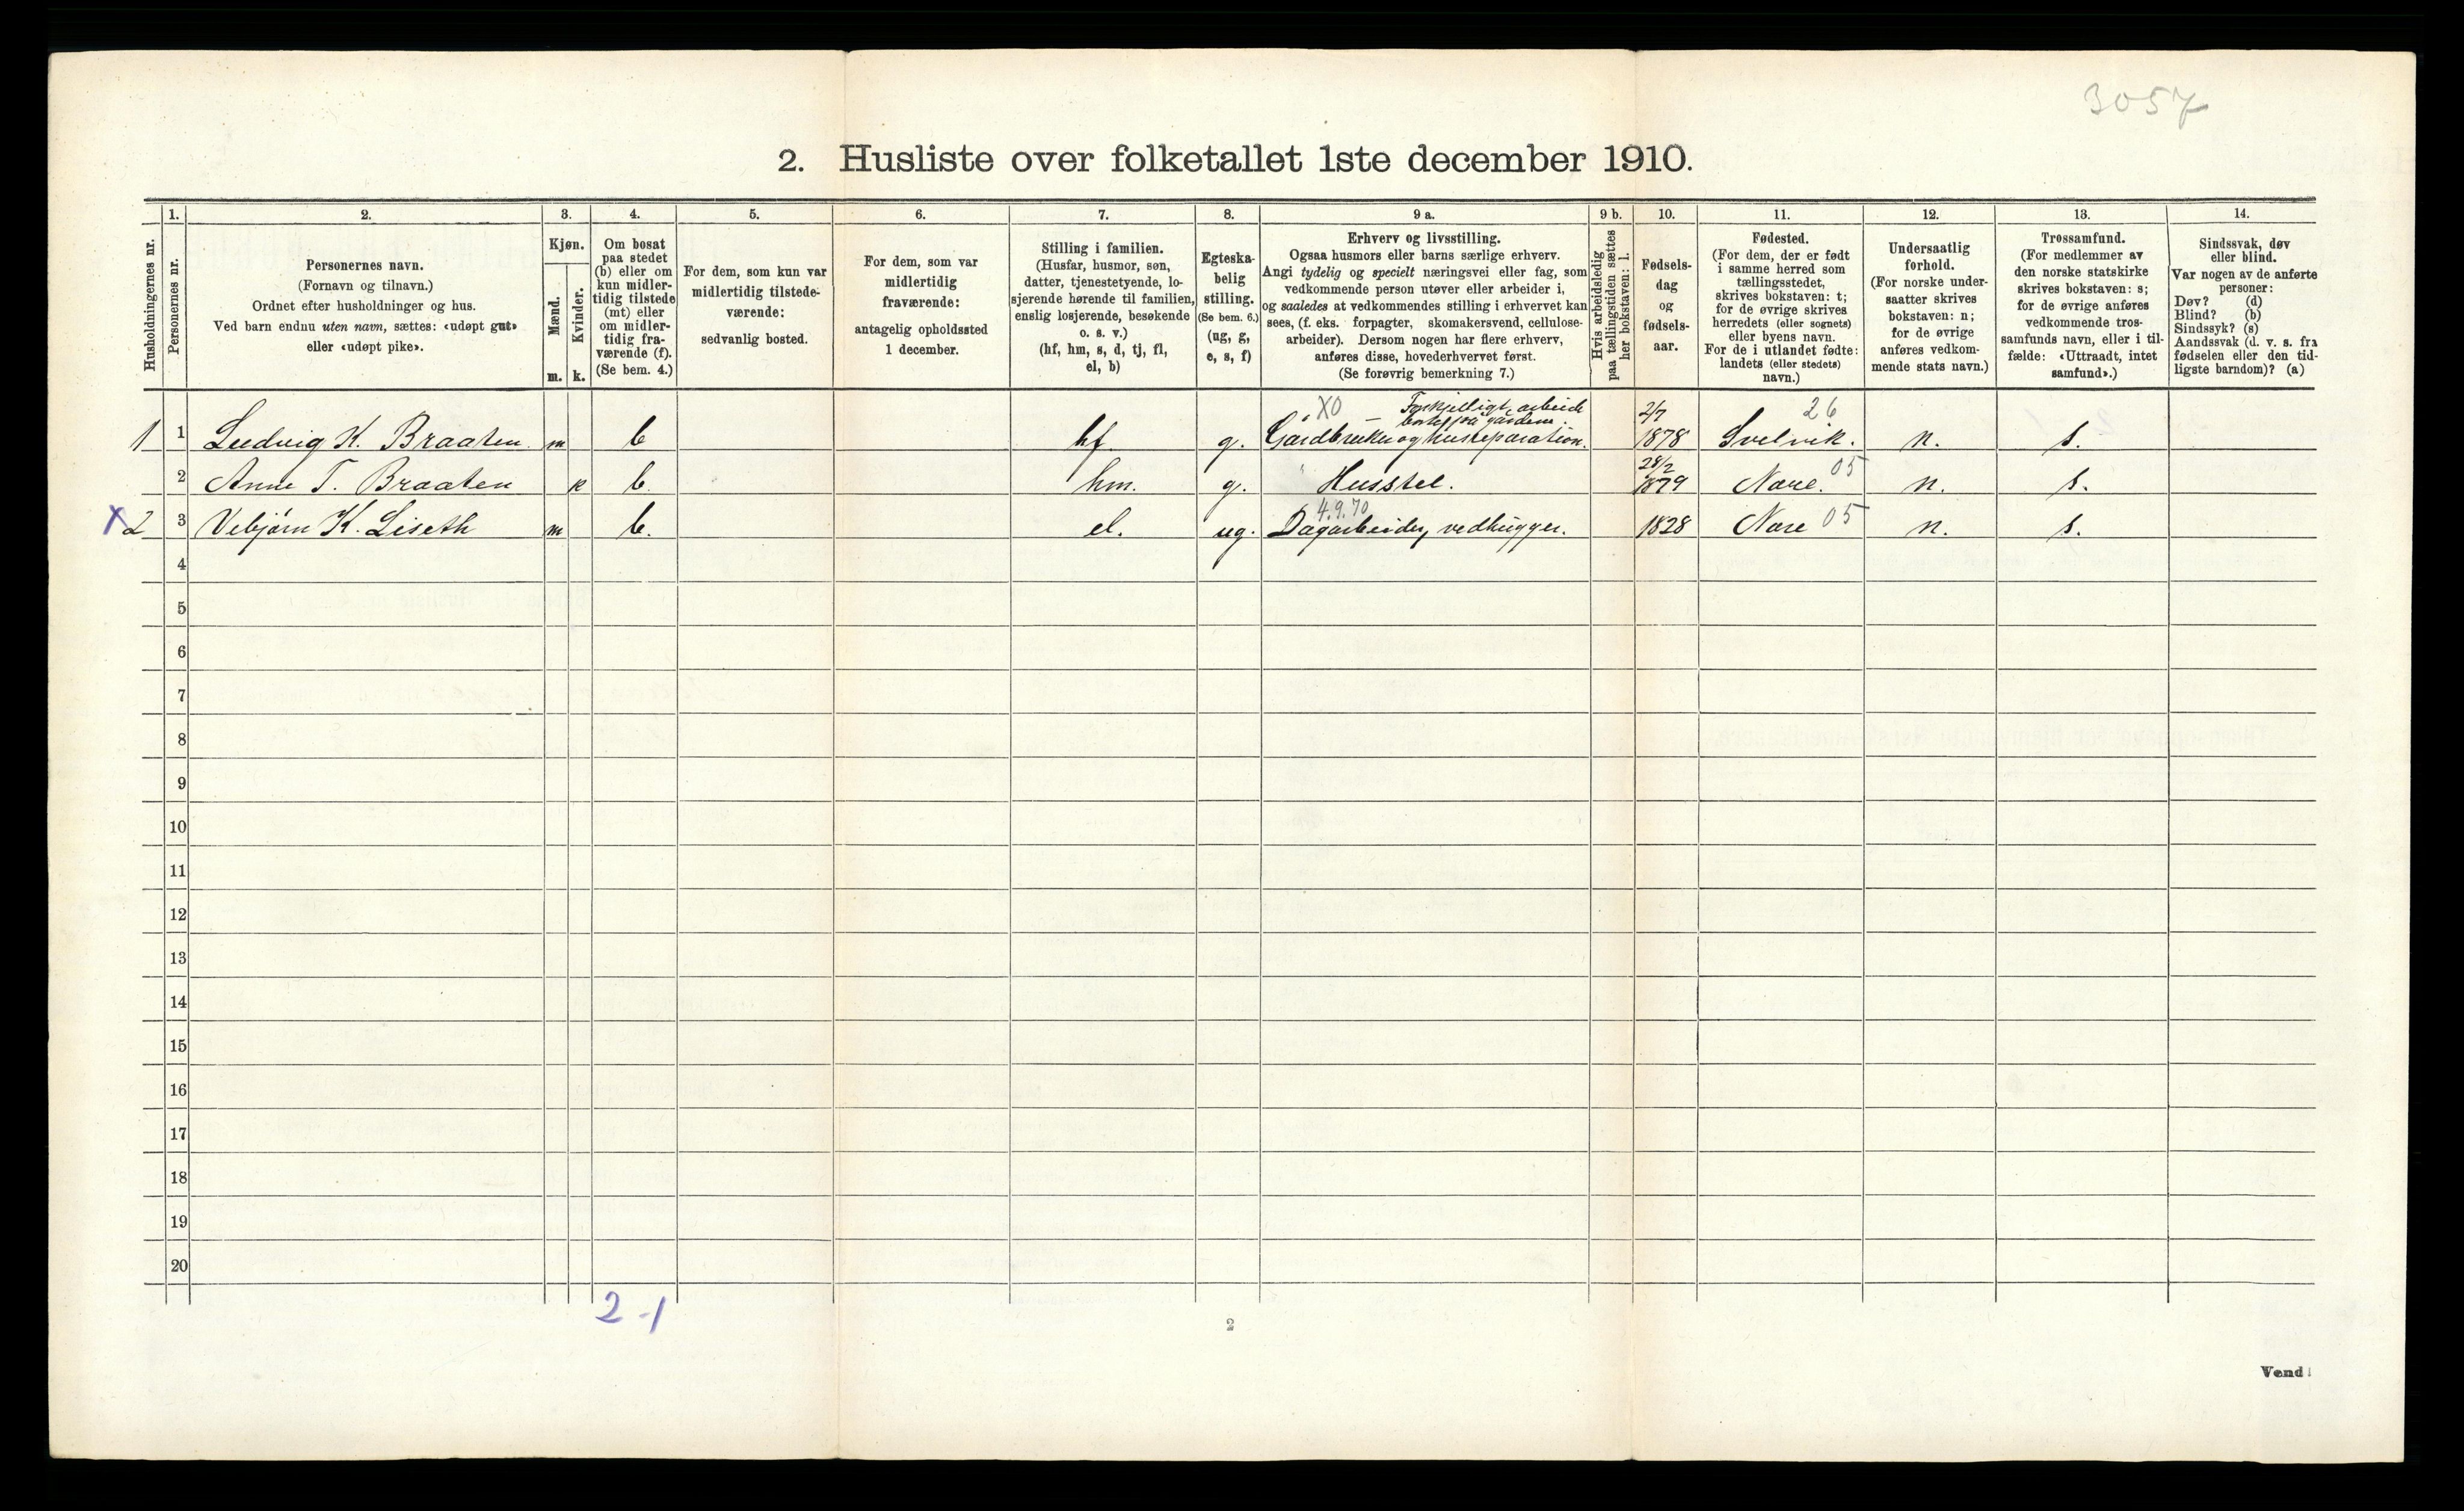 3057
2. Husliste over folketallet 1ste december 1910.
Husholdningernes nr.
1.
Personernes nr.
2.
Personernes navn.
(Fornavn og tilnavn.)
Ordnet efter husholdninger og hus.
Ved barn endnu uten navn, sættes: «udøpt gut»
eller «udøpt pike».
3.
Kjøn.
Mænd.
Kvinder.
m. k.
4.
Om bosat
paa stedet
(b) eller om
kun midler-
tidig tilstede
(mt) eller
om midler-
tidig fra-
værende (f).
(Se bem. 4.)
5.
For dem, som kun var
midlertidig tilstede-
værende:
sedvanlig bosted.
6.
For dem, som var
midlertidig
fraværende:
antagelig opholdssted
1 december.
7.
Stilling i familien.
(Husfar, husmor, søn,
datter, tjenestetyende, lo-
sjerende hørende til familien,
enslig losjerende, besøkende
o. s. v.)
(hf, hm, s, d, tj, fl,
el, b)
8.
Egteska-
belig
stilling.
(Se bem. 6.)
(ug, g,
e, s, f)
9 a.
Erhverv og livsstilling.
Ogsaa husmors eller barns særlige erhverv.
Angi tydelig og specielt næringsvei eller fag, som
vedkommende person utøver eller arbeider i,
og saaledes at vedkommendes stilling i erhvervet kan
sees, (f. eks. forpagter, skomakersvend, cellulose-
arbeider). Dersom nogen har flere erhverv,
anføres disse, hovederhvervet først.
(Se forøvrig bemerkning 7.)
9 b.
Hvis arbeidsledig
paa tællingstiden sættes
her bokstaven: l.
10.
Fødsels-
dag
og
fødsels-
aar.
11.
Fødested.
(For dem, der er født
i samme herred som
tællingsstedet,
skrives bokstaven: t;
for de øvrige skrives
herredets (eller sognets)
eller byens navn.
For de i utlandet fødte:
landets (eller stedets)
navn.)
12.
Undersaatlig
forhold.
(For norske under-
saatter skrives
bokstaven: n;
for de øvrige
anføres vedkom-
mende stats navn.)
13.
Trossamfund.
(For medlemmer av
den norske statskirke
skrives bokstaven: s;
for de øvrige anføres
vedkommende tros-
samfunds navn, eller i til-
fælde: «Uttraadt, intet
samfund».)
14.
Sindssvak, døv
eller blind.
Var nogen av de anførte
personer:
Døv? (d)
Blind? (b)
Sindssyk? (s)
Aandssvak (d. v. s. fra
fødselen eller den tid-
ligste barndom)? (a)
XO – Forskjelligt arbeide 2/7 26
1 1 Ludvig K. Braaten. m b hf. g. Gårdbruker og husreparation. 1878 Svelvik. n. s.
28/2 05
2 Anne T. Braaten k b. hm. g. Husstel. 1879 Nore. n. s.
4.9.70
X 2 3 Vebjørn K. Liseth m b. el. ug. Dagarbeider, vedhugger. 1828 Nore 05 n. s.
4
5
6
7
8
9
10
11
12
13
14
15
16
17
18
19
20
2 - 1
2
Vend